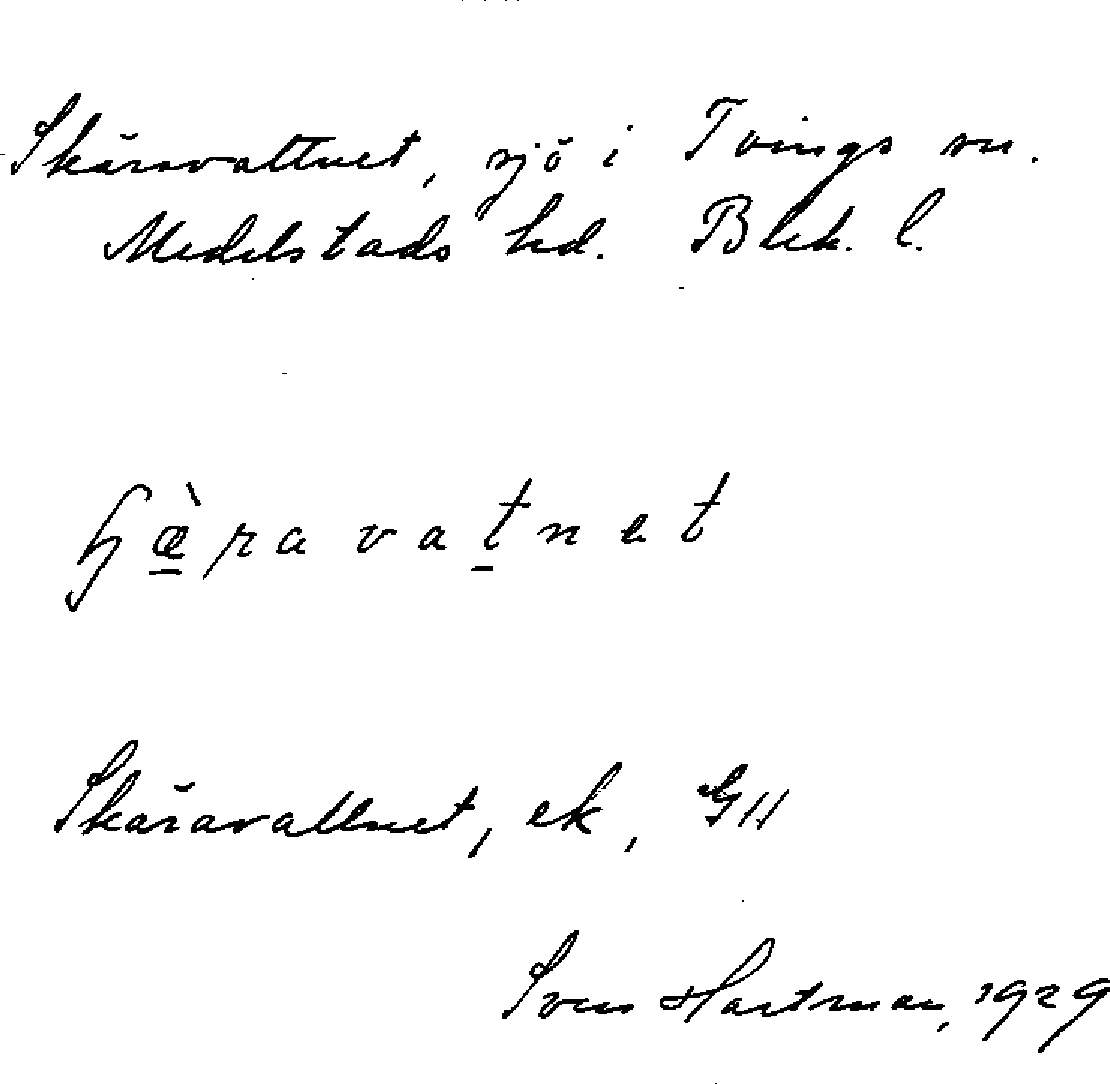 Skäravattnet, sjö i Tvings sn.
Medelstads hd. Blek. l.
ɧæ̠̀ravat̠net
Skäravattnet, ek, GH
Sven Hartman, 1929